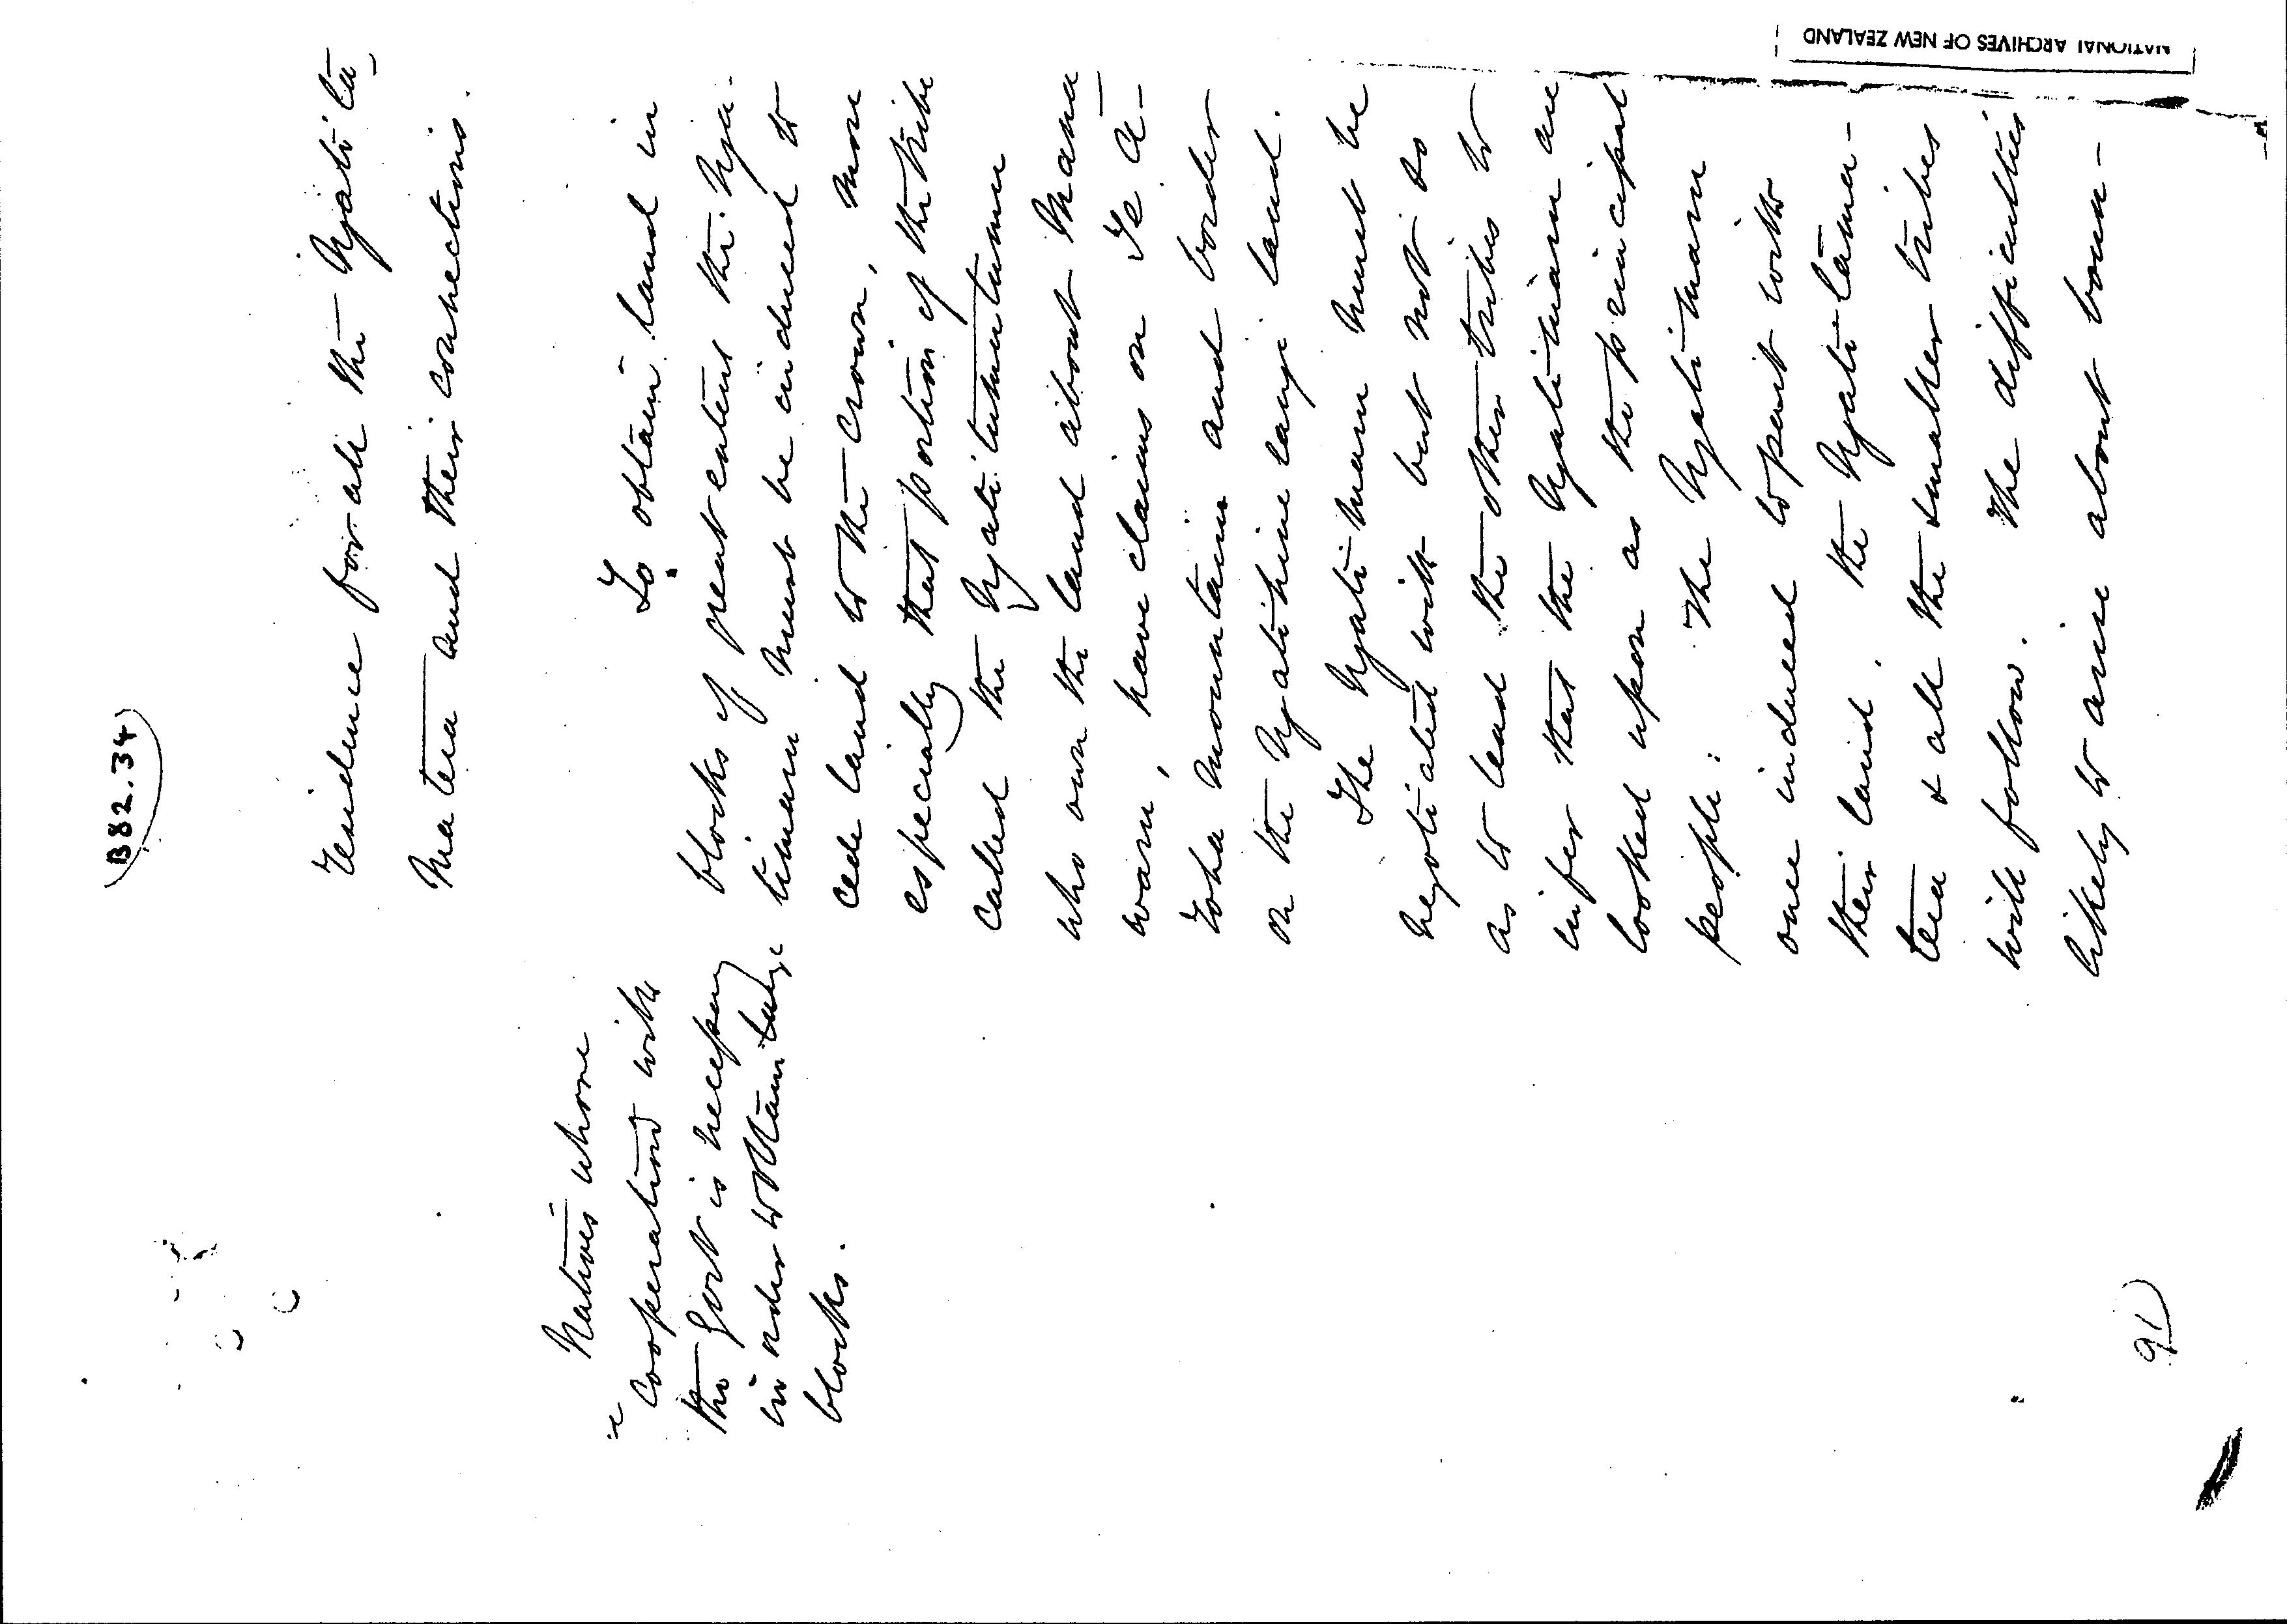 B82.34
residence for all the Ngati ta-
matera and their connections.
Natives whose
cooperation with
the Govt is necessary
in order to obtain large
blocks.
To obtain land in
blocks of great extent the Nga-
timaru must be induced to
cede land to the Crown, more
especially that portion of the tribe
called the Ngati tumutumu
who own the land about Mana
waru, have claims on Te A-
roha mountain and border
on the Ngatihine tangi land.
The Ngati maru must be
negotiated with but not so
as to lead the other tribes to
infer that the Ngatimaru are
looked upon as the principal
people: The Ngati maru
once induced to part with
their land, the Ngati tama-
tera & all the smaller tribes
will follow. The difficulties
likely to arise about boun-
91
NATIONAL ARCHIVES OF NEW ZEALAND